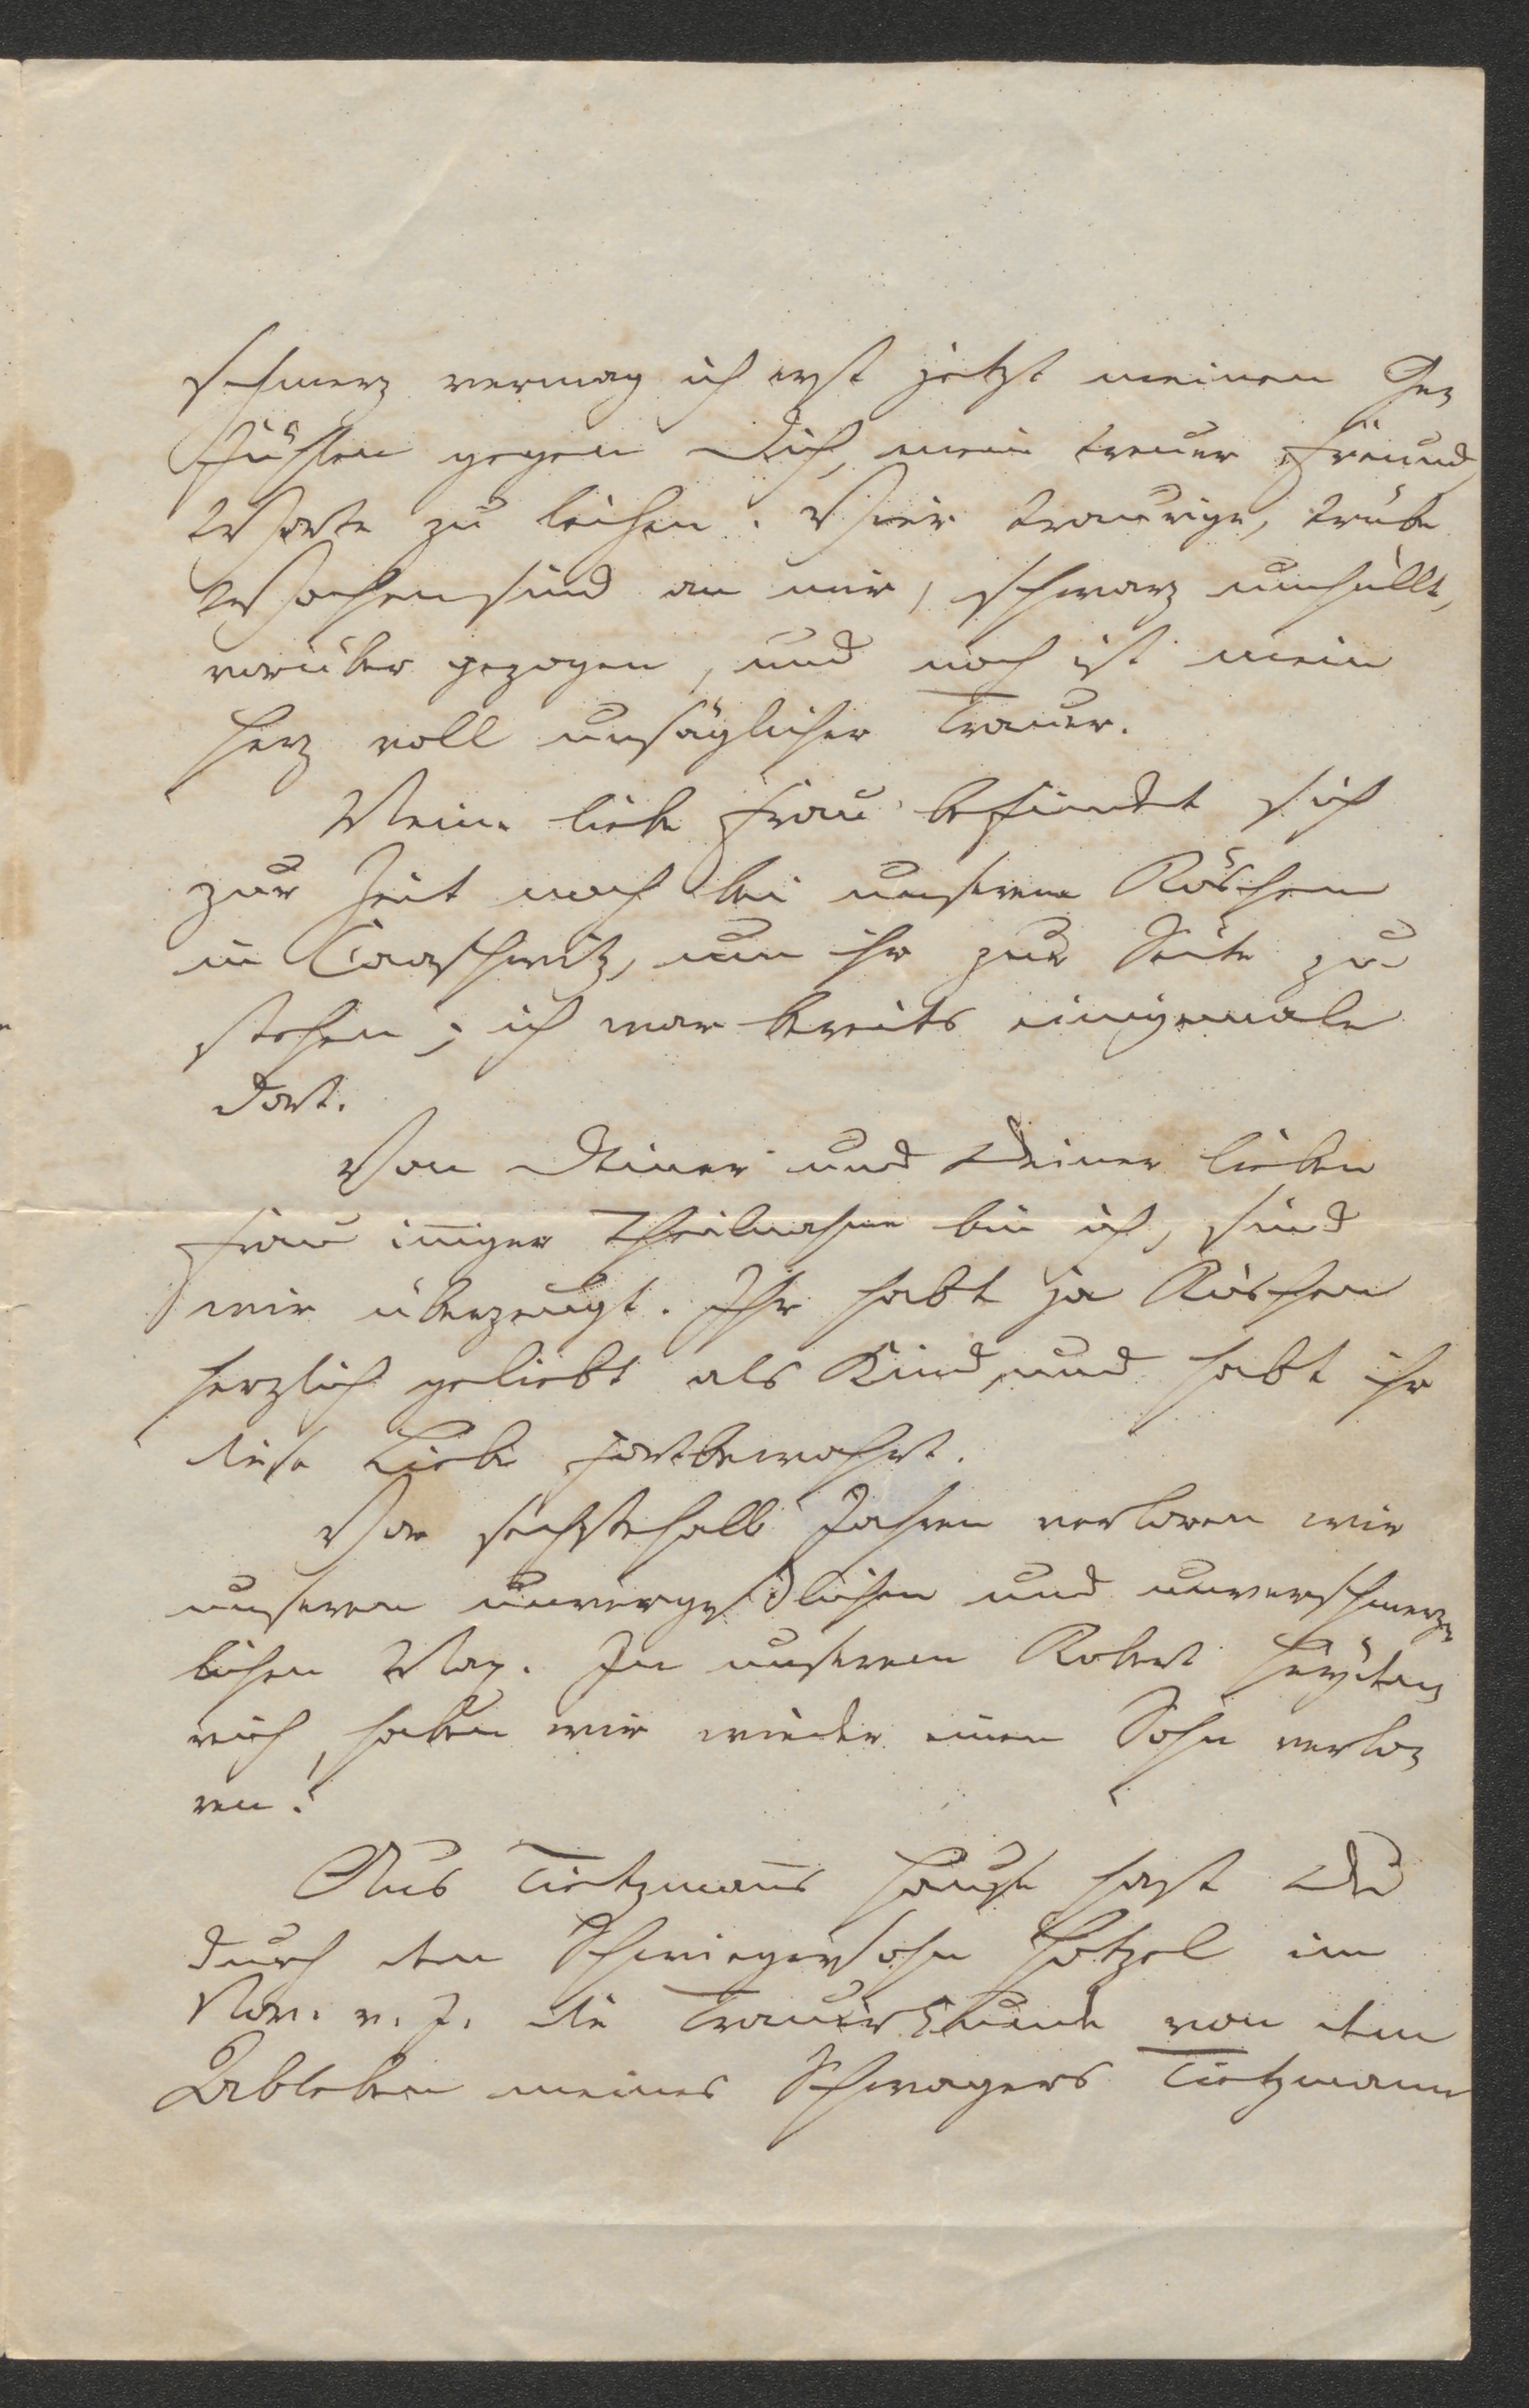 schmerz vermag ich erst jetzt meinen Ge-
fühlen gegen Dich, mein treuer Freund,
Worte zu leihen. Vier traurige, trübe
Wochen sind an mir, schwarz umhüllt,
vorüber gezogen, und noch ist mein
Herz voll unsäglicher Trauer.
Meine liebe Frau befindet sich
zur Zeit noch bei unserem Röschen
in Taaschwitz, um ihr zur Seite zu
stehen; ich war bereits einigemale
dort.
Von Deiner und Deiner lieben
Frau iniger Theilnahme bin ich, sind
wir überzeugt. Ihr habt ja Röschen
herzlich geliebt als Kind, und habt ihr
diese Liebe fortbewahrt.
Vor sechstehalb Jahren verloren wir
unseren unvergeßlichen und unverschmerz-
lichen Max. In unserem Robert
haben wir wieder einen Sohn verlo-
ren!
Aus Tietzmans Hause hast Du
durch den Schwiegersohn Hotzel im
Nov. v. J. die Trauerkunde von dem
Ableben meines Schwagers Tietzmann